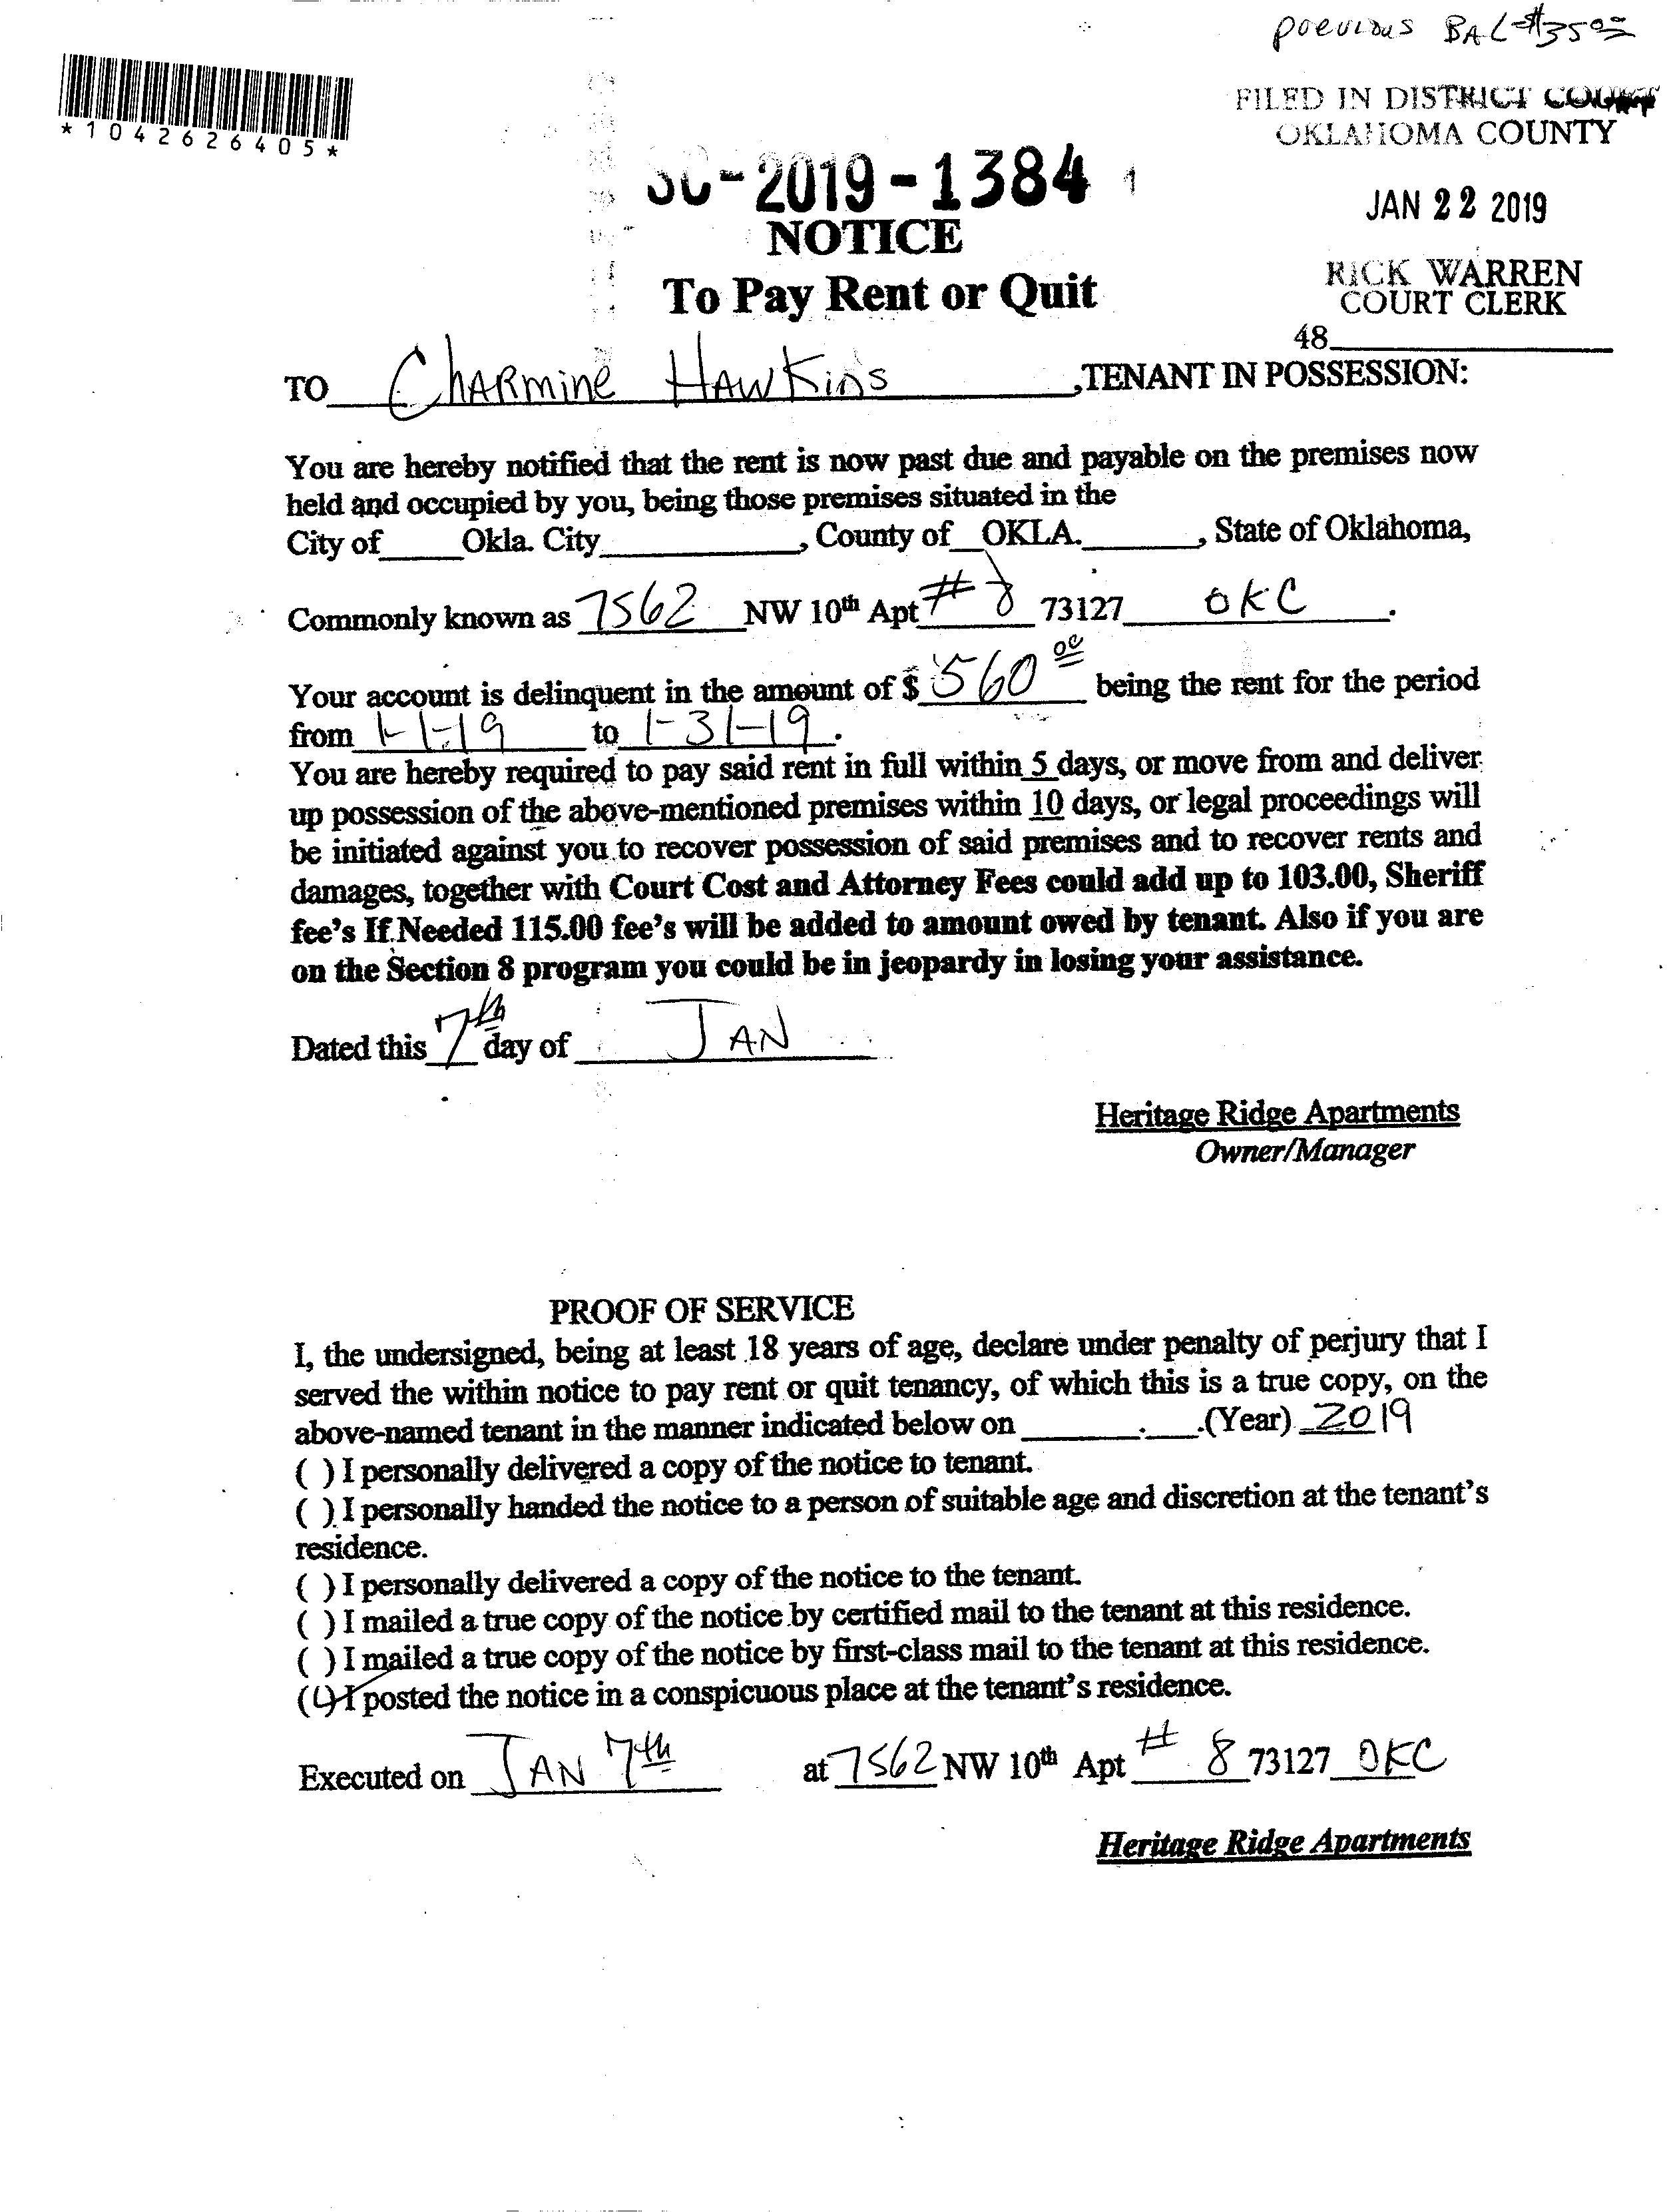 previous BAL $35.00
*1042626405*
FILED IN DISTRICT COURT
OKLAHOMA COUNTY
SC-2019-1384 1
JAN 22 2019
NOTICE
To Pay Rent or Quit
RICK WARREN
COURT CLERK
48
TO Charmine Hawkins ,TENANT IN POSSESSION:
You are hereby notified that the rent is now past due and payable on the premises now
held and occupied by you, being those premises situated in the
City of Okla. City , County of OKLA. , State of Oklahoma,
Commonly known as 7562 NW 10th Apt # 8 73127 OKC .
Your account is delinquent in the amount of $ 560.00 being the rent for the period
from 1-1-19 to 1-31-19 .
You are hereby required to pay said rent in full within 5 days, or move from and deliver
up possession of the above-mentioned premises within 10 days, or legal proceedings will
be initiated against you to recover possession of said premises and to recover rents and
damages, together with Court Cost and Attorney Fees could add up to 103.00, Sheriff
fee's If Needed 115.00 fee's will be added to amount owed by tenant. Also if you are
on the Section 8 program you could be in jeopardy in losing your assistance.
Dated this 7th day of JAN
Heritage Ridge Apartments
Owner/Manager
PROOF OF SERVICE
I, the undersigned, being at least 18 years of age, declare under penalty of perjury that I
served the within notice to pay rent or quit tenancy, of which this is a true copy, on the
above-named tenant in the manner indicated below on ______.___.(Year) 2019
( ) I personally delivered a copy of the notice to tenant.
( ) I personally handed the notice to a person of suitable age and discretion at the tenant's
residence.
( ) I personally delivered a copy of the notice to the tenant.
( ) I mailed a true copy of the notice by certified mail to the tenant at this residence.
( ) I mailed a true copy of the notice by first-class mail to the tenant at this residence.
(✓) I posted the notice in a conspicuous place at the tenant's residence.
Executed on JAN 7th at 7562 NW 10th Apt # 8 73127 OKC
Heritage Ridge Apartments